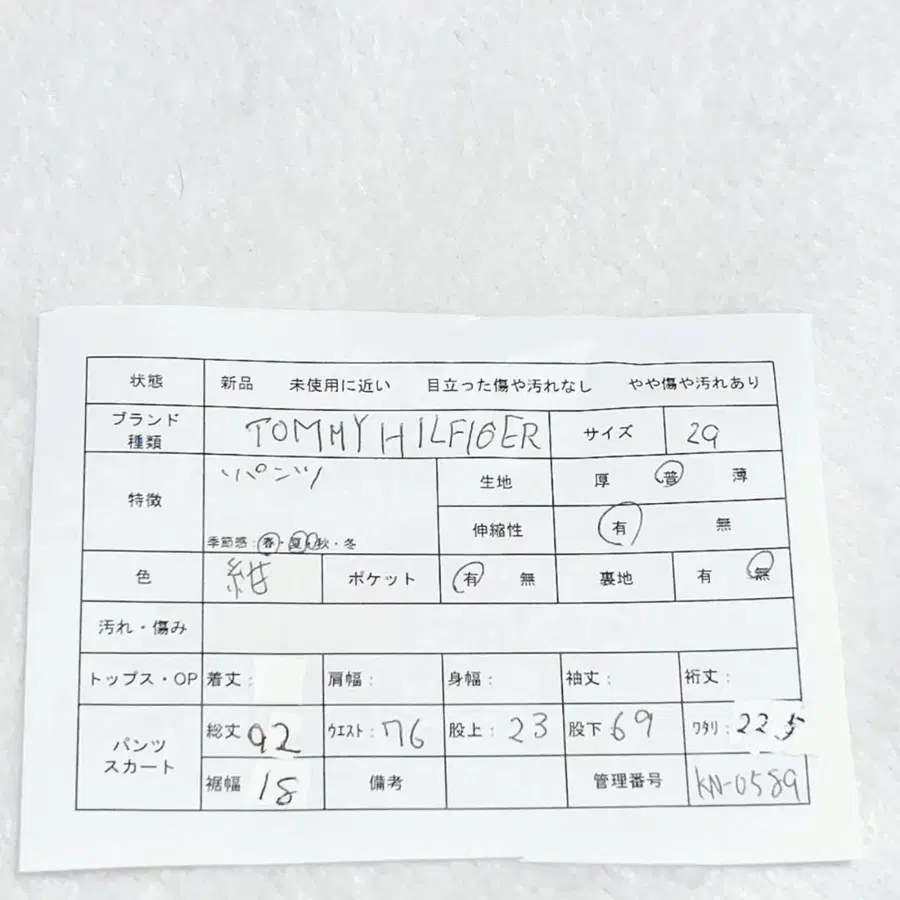 状態 新品 未使用に近い 目立った傷や汚れなし やや傷や汚れあり
ブランド 種類 TOMMY HILFIGER サイズ 29
特徴 パンツ 生地 厚 普 薄
季節感：春・夏・秋・冬 伸縮性 有 無
色 紺 ポケット 有 無 裏地 有 無
汚れ・傷み
トップス・OP 着丈： 肩幅： 身幅： 袖丈： 裄丈：
パンツ スカート 総丈 92 ウエスト：76 股上：23 股下 69 ワタリ：22.5
裾幅 18 備考 管理番号 KN-0589